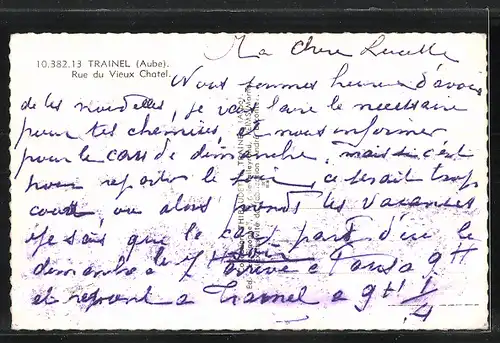 10.382.13 TRAINEL (Aube).
Rue du Vieux Chatel.
Ma chere Lucette
Nous sommes heureux d'avoir
de tes nouvelles, je vais faire le necessaire
pour tes chemises, nous informer
pour le cass de dimanche, mais si c'est
pour repartir le soir, ce serait trop
court, ou alors prends tes vacances
je sais que le car part d'ici le
dimanche a 7H soir arrive a Paris a 9H
et repart a Trainel a 9H 1/4